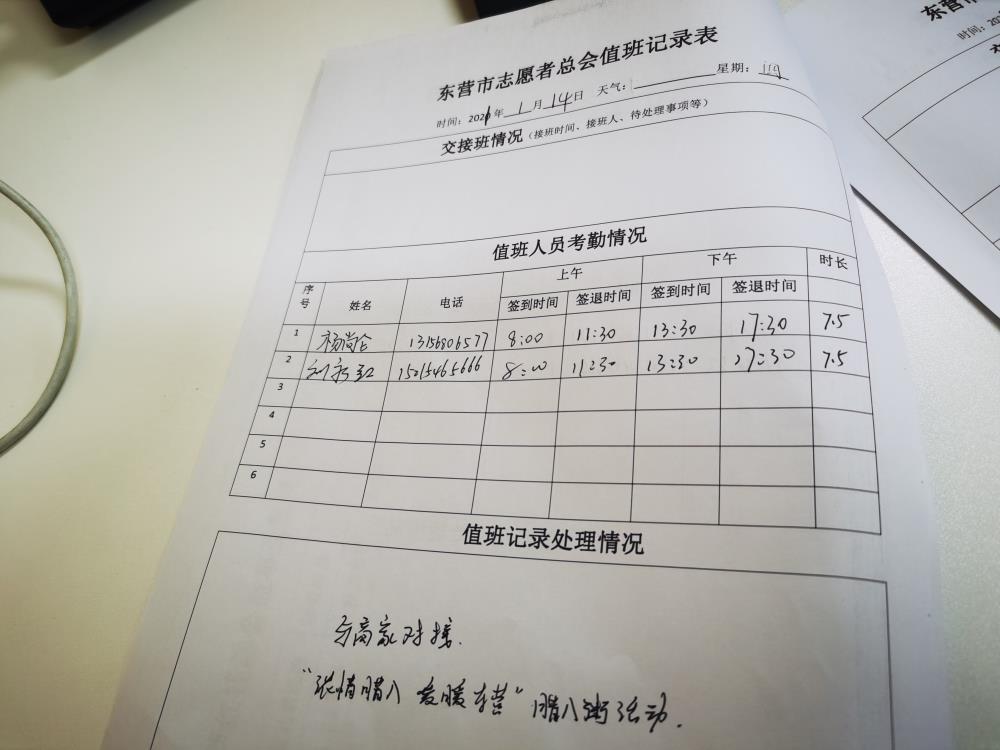 东营市志愿者总会值班记录表
时间：2021年 1 月 14 日 天气： 星期：四
交接班情况（接班时间、接班人、待处理事项等）
值班人员考勤情况
序号 姓名 电话 上午 下午 时长
签到时间 签退时间 签到时间 签退时间
1 杨尚仑 13156806577 8:00 11:30 13:30 17:30 7.5
2 15215465666 8:00 11:30 13:30 17:30 7.5
3
4
5
6
值班记录处理情况
与商家对接.
“浓情腊八 爱暖东营” 腊八粥活动.
东营市
时间：202